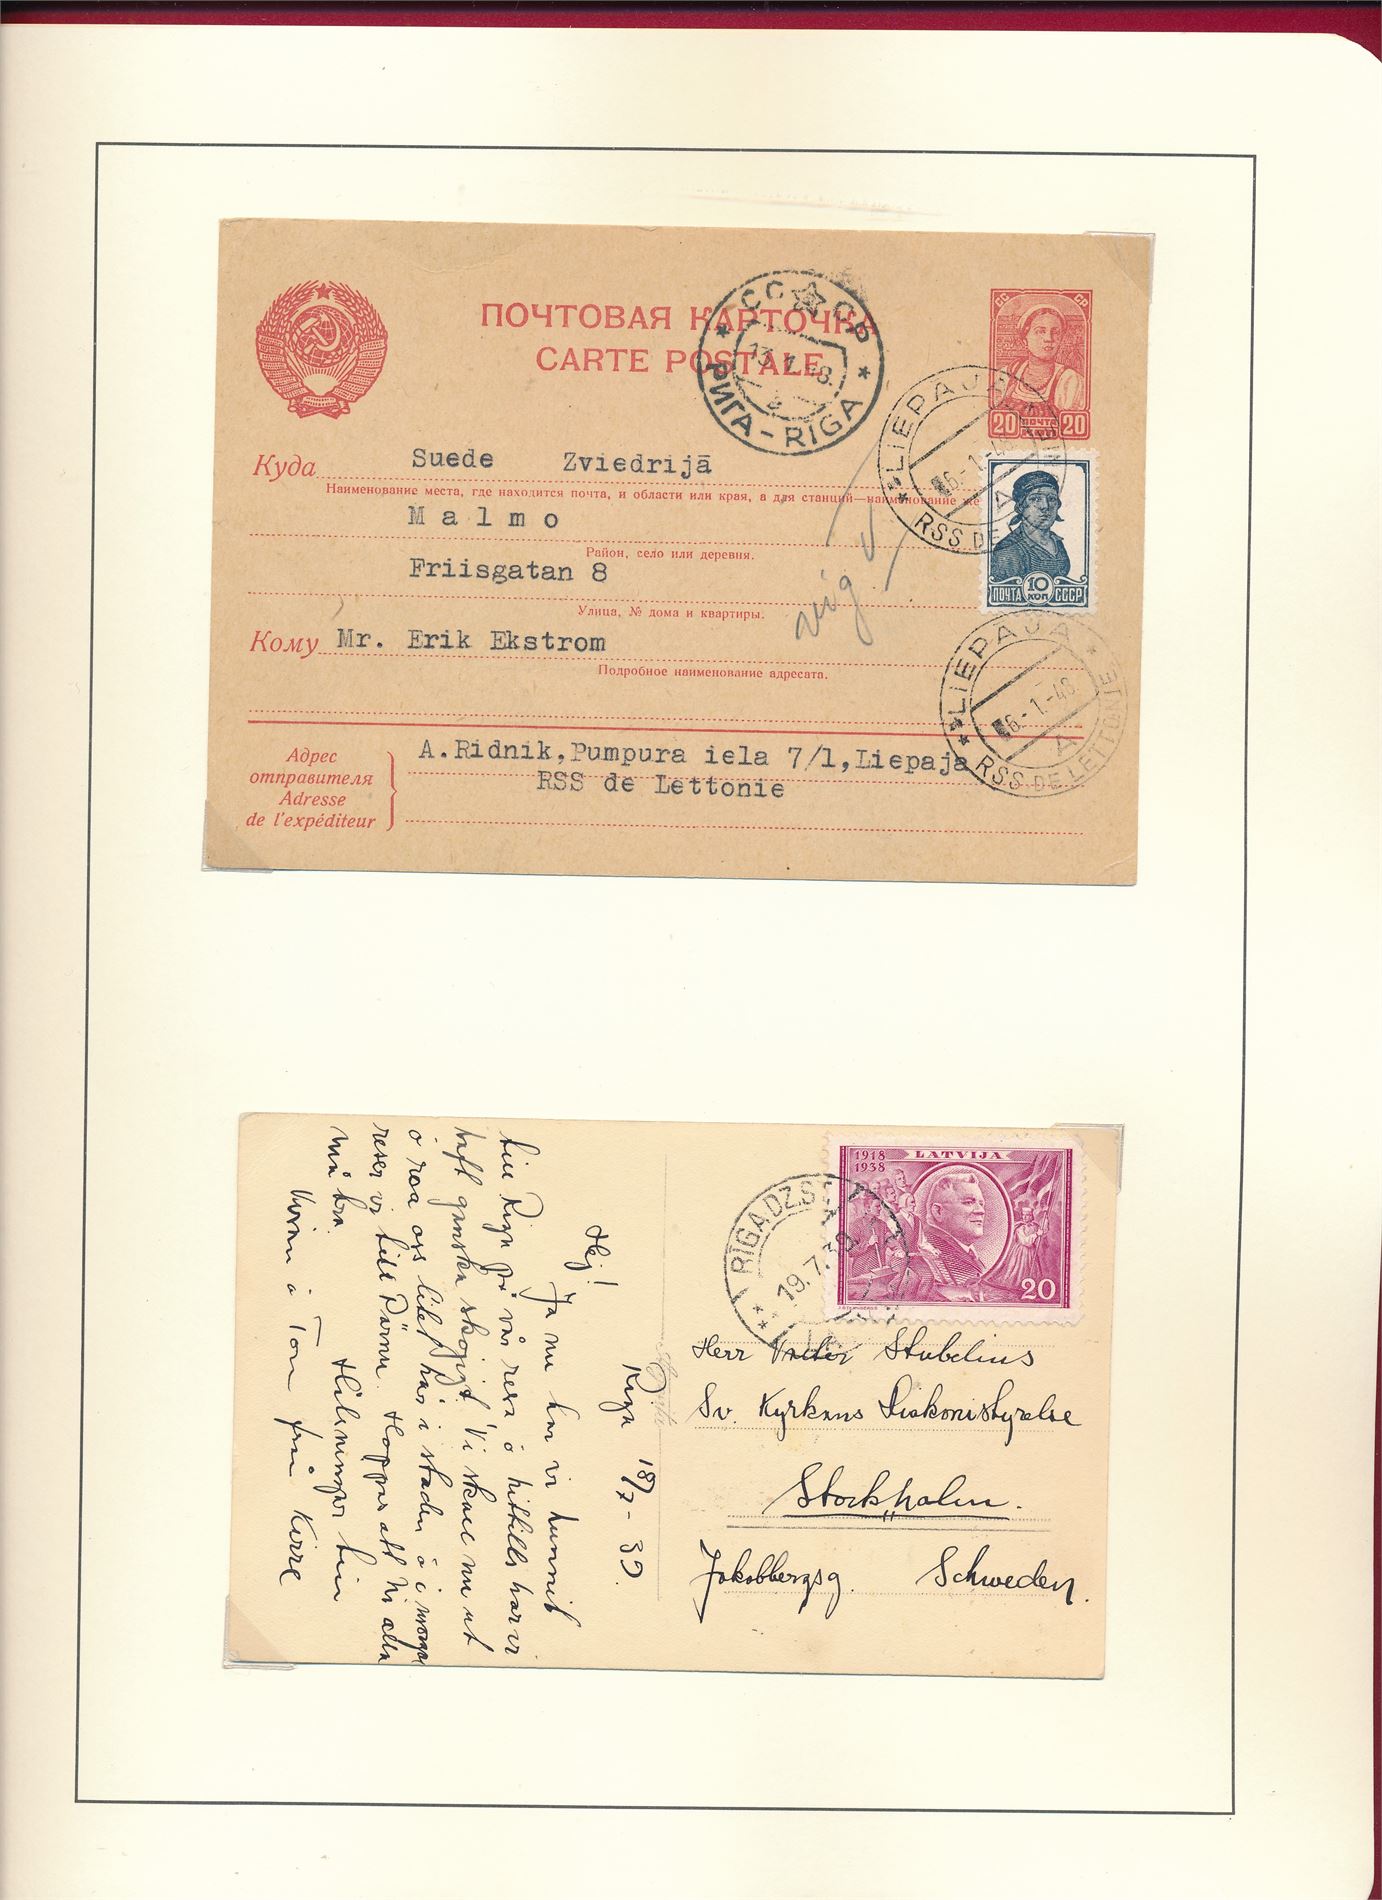 ПОЧТОВАЯ КАРТОЧКА
CARTE POSTALE
СС СР
20 ПОЧТА 20
СС СР
13.1.48.
РИГА-RIGA
LIEPĀJA
6.-1.-48
A
RSS DE
10
КОП
ПОЧТА СССР
Куда Suede Zviedrijā
Наименование места, где находится почта, и области или края, а для станций—наименование же
Malmo
Район, село или деревня.
Friisgatan 8
Улица, № дома и квартиры.
Кому Mr. Erik Ekstrom
Подробное наименование адресата.
LIEPĀJA
6.-1.-48
A
RSS DE LETTONIE
Адрес
отправителя
Adresse
de l'expéditeur
A.Ridnik,Pumpura iela 7/1,Liepaja
RSS de Lettonie
1918 LATVIJA
1938
20
RIGA DZ.
19.7.39
Riga 18/7-39.
Hej!
Ja nu har vi hunnit
till Riga på vår resa o hittills har vi
haft ganska skojigt. Vi skall nu ut
o roa oss litet här i staden o i morgon
reser vi till Pärnu. Hoppas att Ni alla
må bra.
Hälsningar till
från Kirre
Herr Stubelius
Sv. Kyrkans Diakonistyrelse
Stockholm.
Jakobbergsg. Schweden.